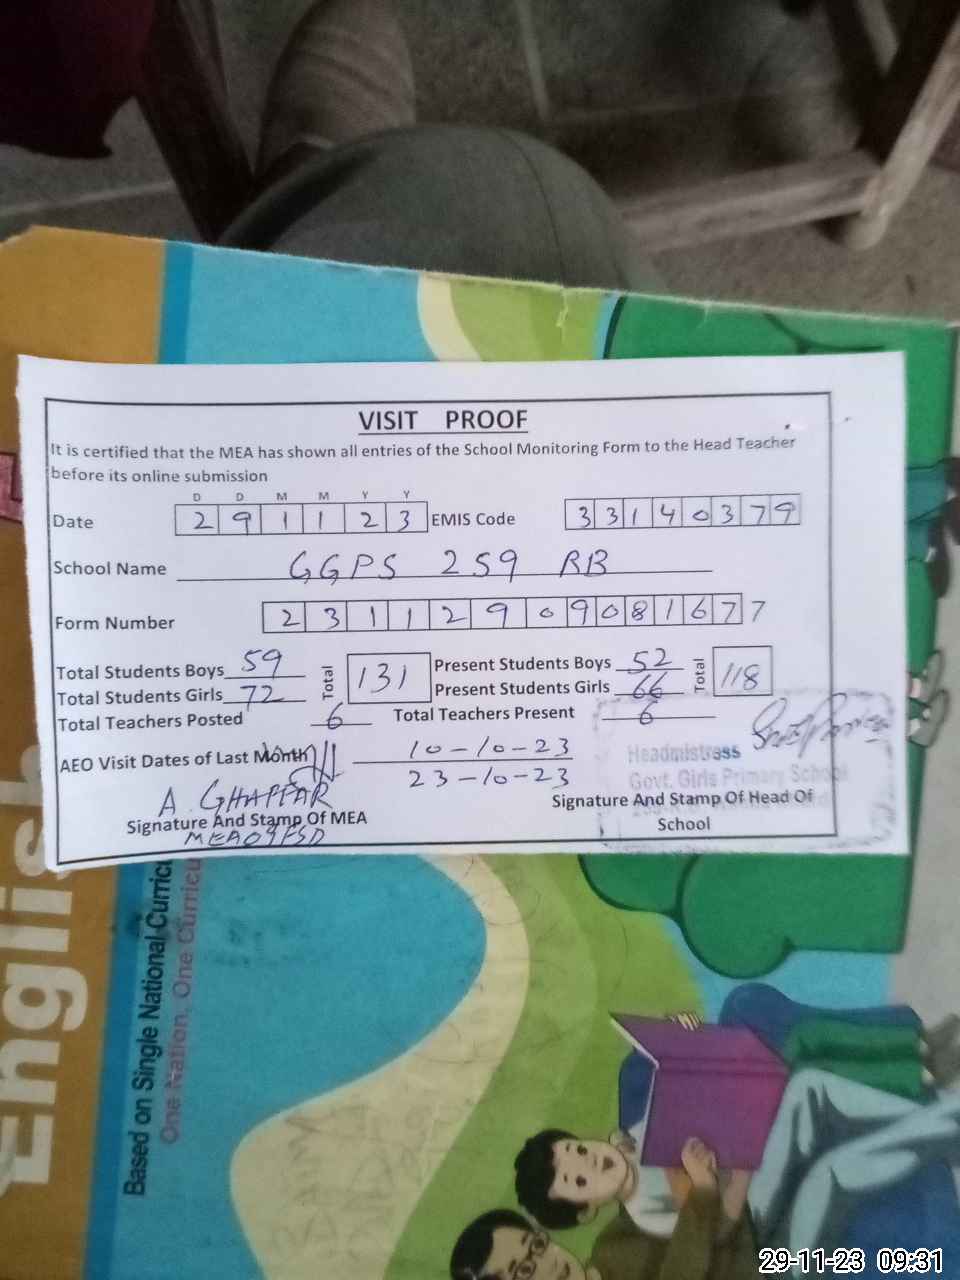 VISIT PROOF
It is certified that the MEA has shown all entries of the School Monitoring Form to the Head Teacher
before its online submission
D D M M Y Y
Date 2 9 1 1 2 3 EMIS Code 3 3 1 4 0 3 7 9
School Name GGPS 259 RB
Form Number 2 3 1 1 2 9 0 9 0 8 1 6 7 7
Total Students Boys 59 Total 131 Present Students Boys 52 Total 118
Total Students Girls 72 Present Students Girls 66
Total Teachers Posted 6 Total Teachers Present 6
AEO Visit Dates of Last Month 10-10-23
23-10-23
Headmistress
Govt. Girls Primary School
A. GHAFFAR
Signature And Stamp Of MEA
MEA09FSD
Signature And Stamp Of Head Of
School
English
Based on Single National Curric
One Nation, One Curricu
29-11-23 09:31